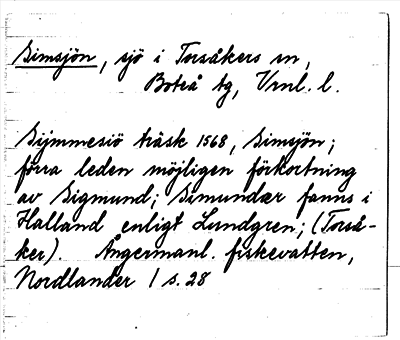 Simsjön, sjö i Torsåkers sn,
Boteå tg, Vrnl. l.
Sijmmesiö träsk 1568, Simsjön;
förra leden möjligen förkortning
av Sigmund; Simundær fanns i
Halland enligt Lundgren; (Torså-
ker). Ångermanl. fiskevatten,
Nordlander 1 s. 28